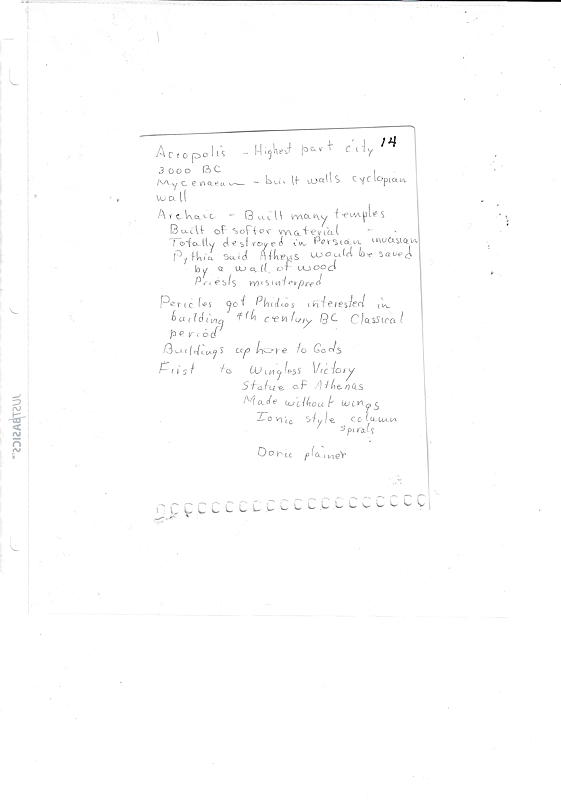 14
Acropolis - Highest part city
3000 BC
Mycenaean - built walls cyclopian
wall
Archaic - Built many temples
Built of softer material
Totally destroyed in Persian invasion
Pythia said Athens would be saved
by a wall of wood
Priests misinterpred
Pericles got Phidios interested in
building 4th century BC Classical
period
Buildings up here to Gods
First to Wingless Victory
Statue of Athenas
Made without wings
Ionic style column
spirals
Doric plainer
JUSTBASICS